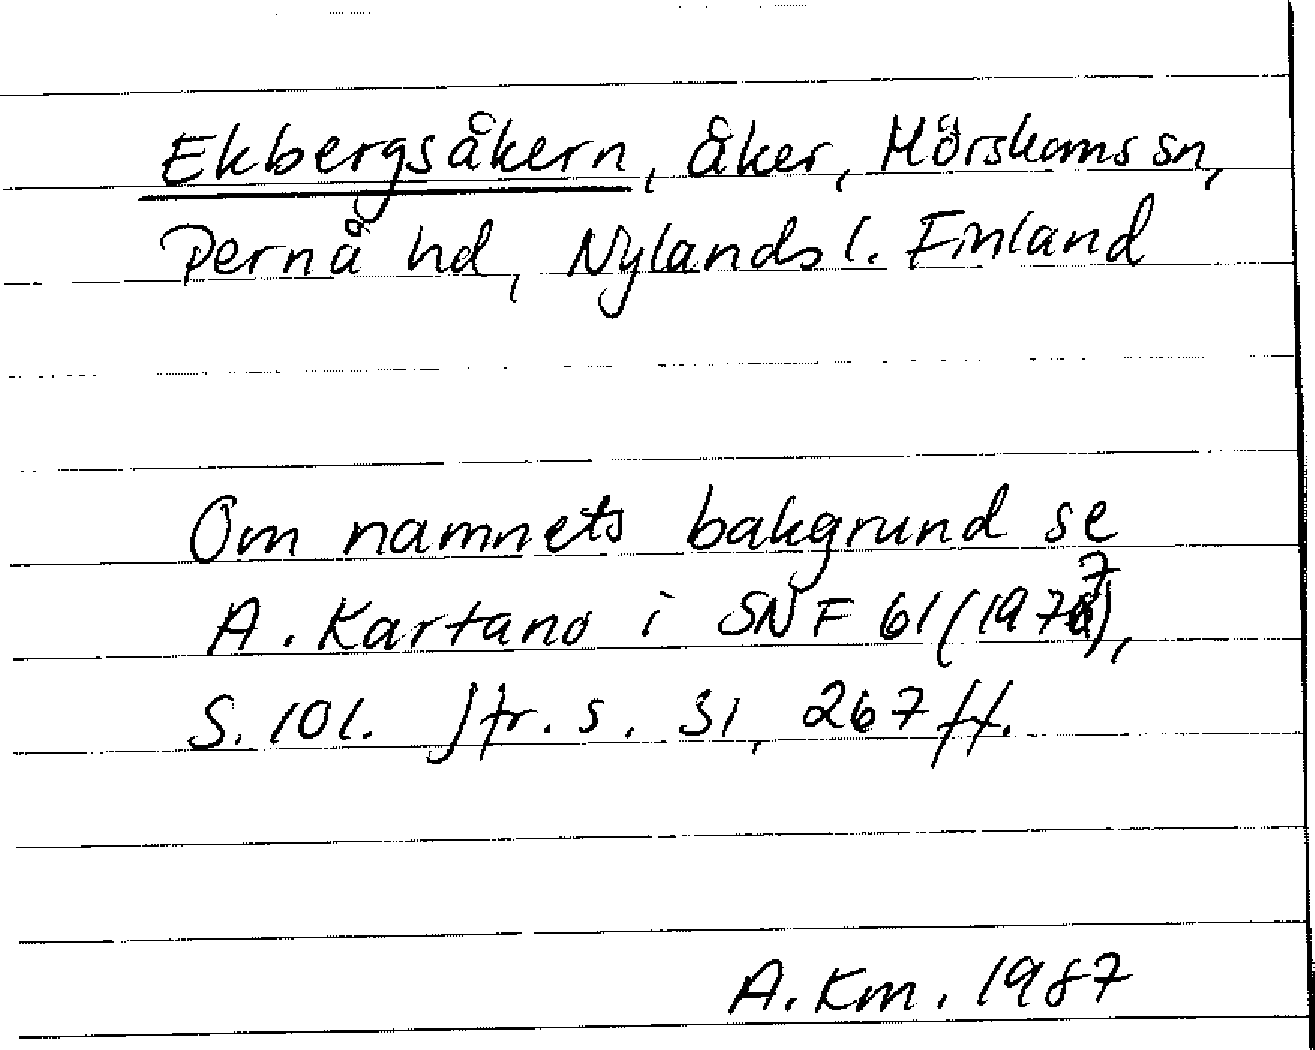 Ekbergsåkern, åker, Mörskoms sn,
Pernå hd, Nylands l. Finland
Om namnets bakgrund se
A. Kartano i SNF 61 (1977),
S. 101. Jfr. s. 31, 267 ff.
A. Km. 1987